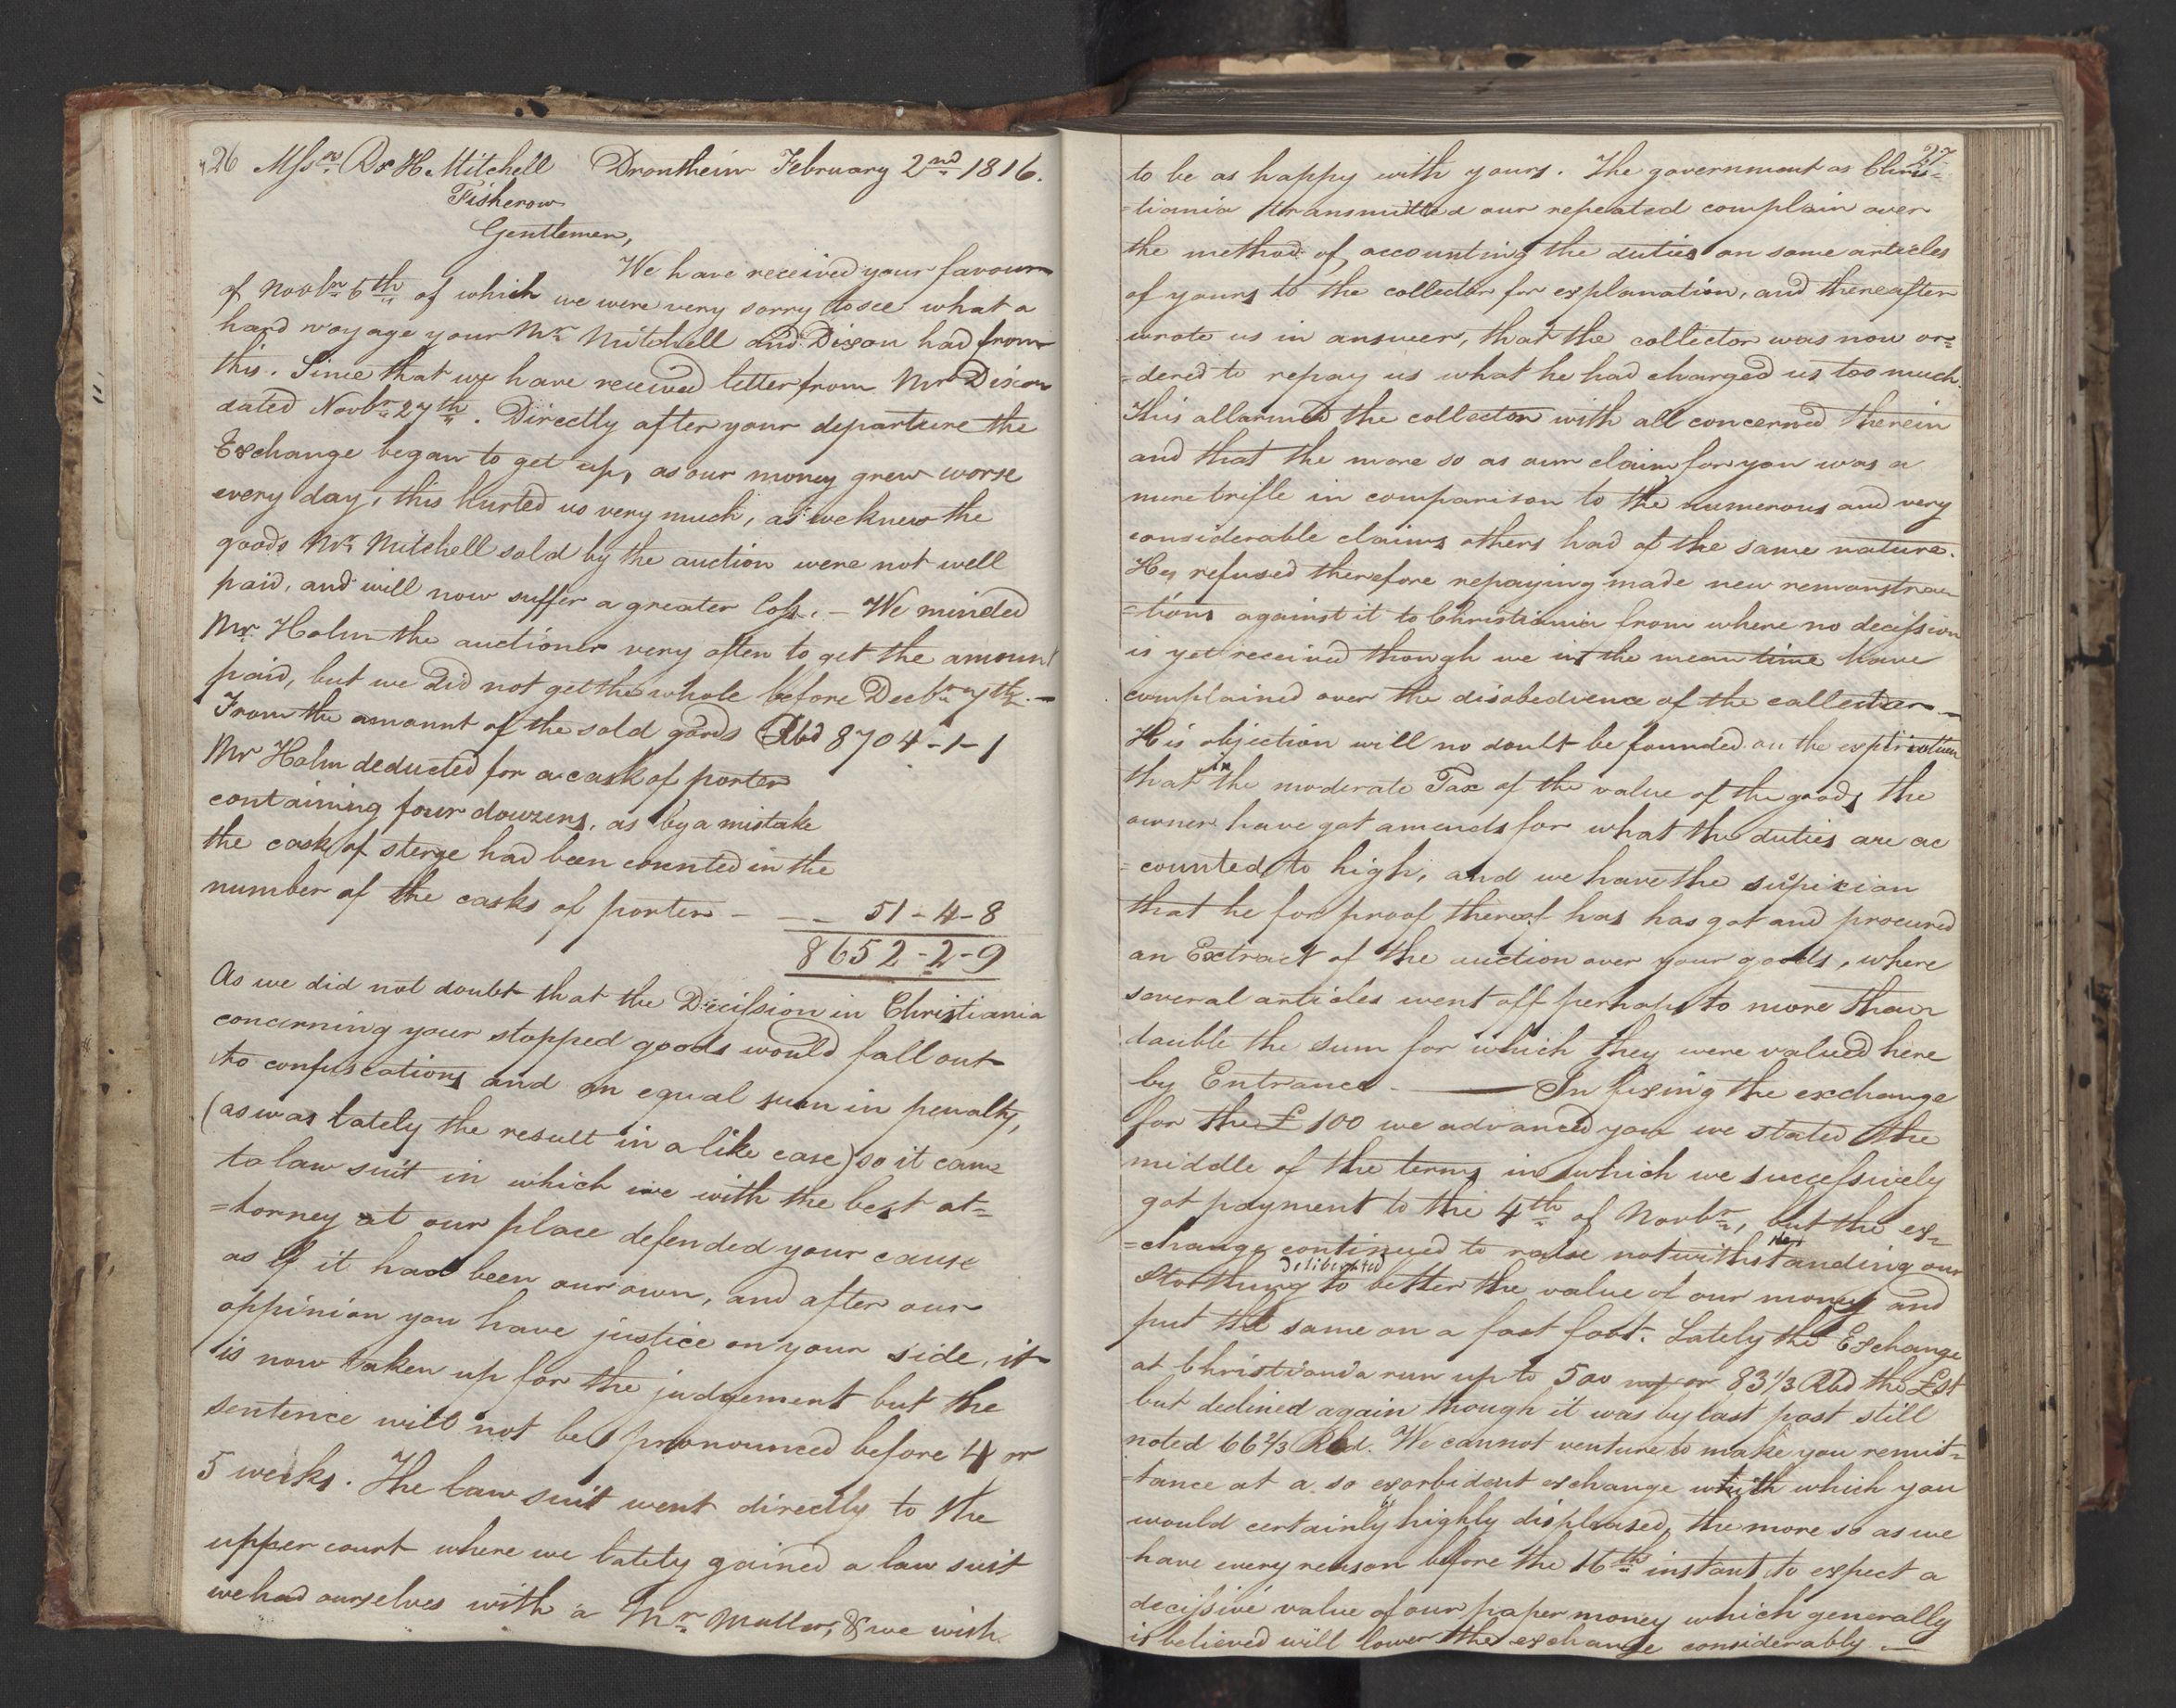 26 Mssrs R & H Mitchell Drontheim February 2nd 1816.
Fisherow
Gentlemen,
We have received your favour
of Novbr 6th of which we were very sorry to see what a
hard woyage your Mr Mitchell and Dixon had from
this. Since that we have received letter from Mr Dixon
dated Novbr 27th. Directly after your departure the
Exchange began to get up, as our money grew worse
every day, this hurted us very much, as we knew the
goods Mr Mitchell sold by the auction were not well
paid, and will now suffer a greater loss. — We minded
Mr Holm the auctioner very often to get the amount
paid, but we did not get the whole before Decbr 7th. —
From the amount of the sold goods Rbd 8704-1-1
Mr Holm deducted for a cask of porter
containing four douzens, as by a mistake
the cask of sterge had been counted in the
number of the casks of porter - — — 51-4-8
8652-2-9
As we did not doubt that the Decission in Christiania
concerning your stopped goods would fall out
to confiscations and an equal sum in penalty,
(as was lately the result in a like case) so it came
to law suit in which we with the best at=
=torney at our place defended your cause
as if it had been our own, and after our
oppinion you have justice on your side, it
is now taken up for the judgement but the
sentence will not be pronounced before 4 or
5 weeks. The law suit went directly to the
upper court where we lately gained a law suit
we had ourselves with a Mr Muller, & we wish
27
to be as happy with yours. The government as Chris=
=tiania transmitted our repeated complain over
the method of accounting the duties on some articles
of yours to the collector for explanation, and thereafter
wrote us in answer, that the collector was now or=
=dered to repay us what he had charged us too much.
This allarmed the collector with all concerned therein
and that the more so as our claim for you was a
mere trifle in comparison to the numerous and very
considerable claims others had of the same nature.
He refused therefore repaying made new remonstra
=tions against it to Christiania from where no decission
is yet received though we in the mean time have
complained over the disobedience of the collector —
His objection will no doubt be founded on the
that in the moderate Tax of the value of the goods the
owner have got amends for what the duties are ac
=counted to high, and we have the supicion
that he for proof thereof has has got and procured
an Extract of the auction over your goods, where
several articles went off perhaps to more than
double the sum for which they were valued here
by Entrance. — In fixing the exchange
for the £100 we advanced you we stated the
middle of the terms in which we successively
got payment to the 4th of Novbr, but the ex=
=change continued to raise notwithstanding our
Storthing deliberated to better the value of our money and
put the same on a fast foot. Lately the Exchange
at Christiania run up to 500 or 83 1/3 Rbd the £St
but declined again though it was by last post still
noted 66 2/3 Rbd. We cannot venture to make you remit=
=tance at a so exorbident exchange with which you
would certainly highly displeased, the more so as we
have every reason before the 16th instant to expect a
decissive value of our paper money which generally
is believed will lower the exchange considerably —